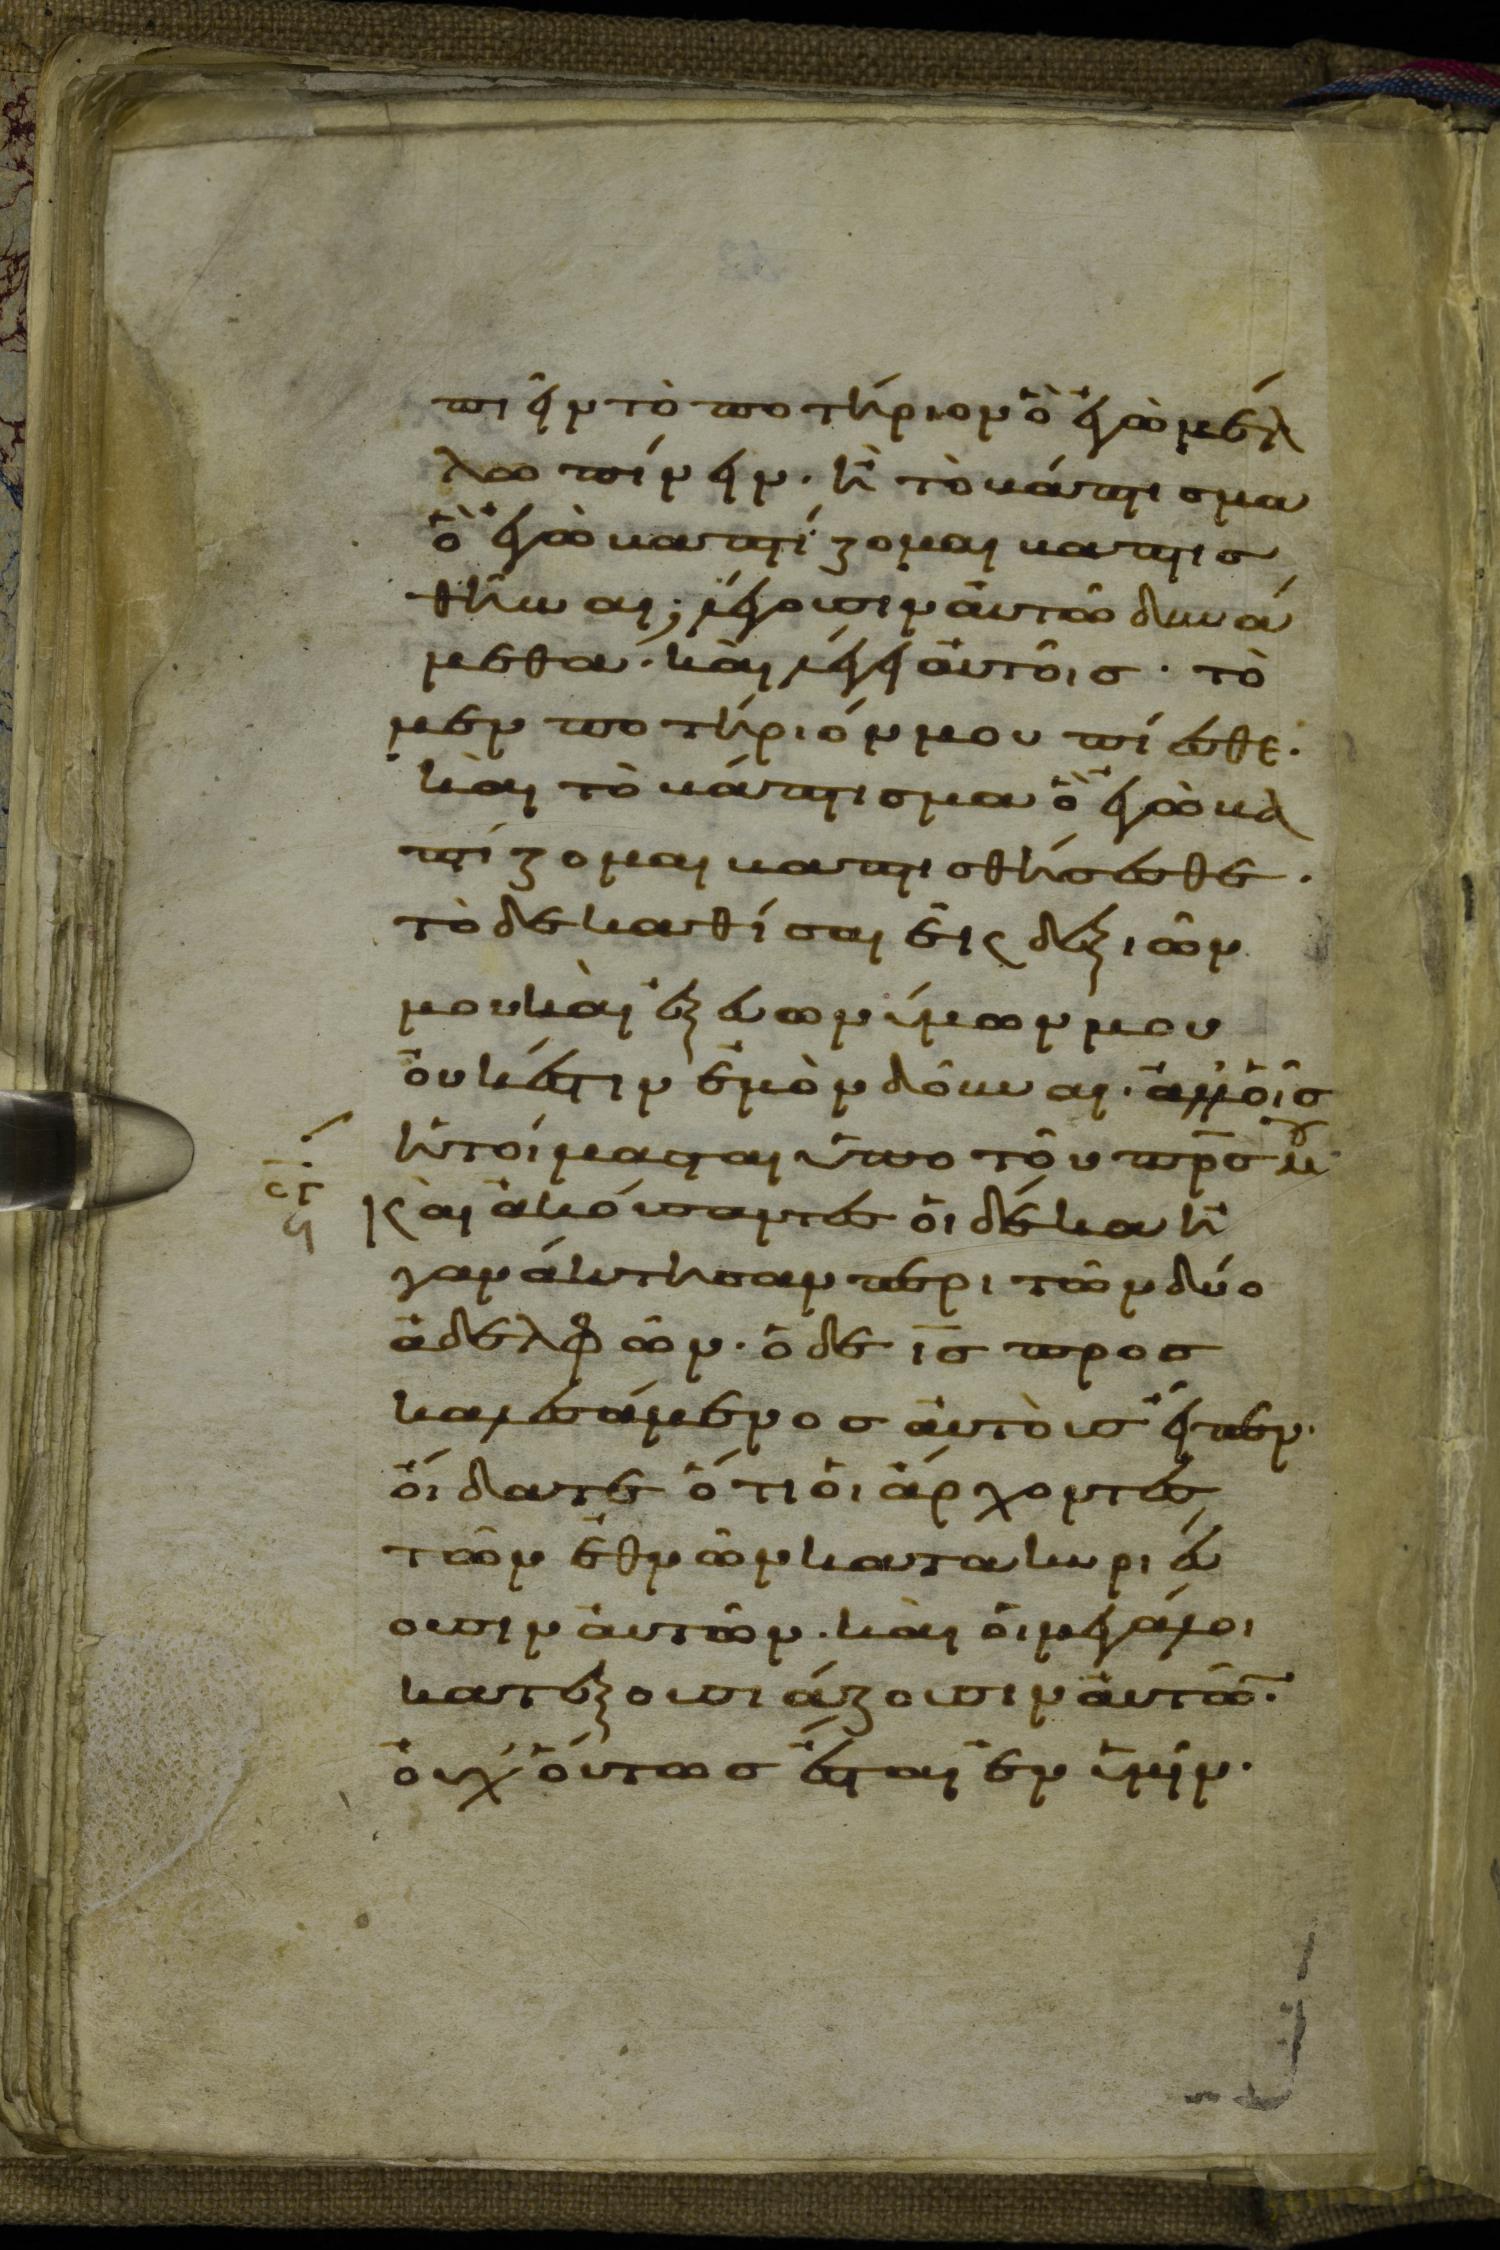 πιεῖν τὸ ποτήριον ὃ ἐγὼ μέλ
λω πίνειν. ἢ τὸ βάπτισμα
ὃ ἐγὼ βαπτίζομαι βαπτισ
θῆναι; λέγουσιν αὐτῶ δυνά
μεθα. καὶ λέγει αὐτοῖς. τὸ
μεν ποτήριόν μου πίεσθε.
καὶ τὸ βάπτισμα ὃ ἐγὼ βα
πτίζομαι βαπτισθήσεσθε.
τὸ δε καθίσαι εἰς δεξιῶν
μου καὶ ἐξ εωνύμων μου
οὐκ έστιν ἐμὸν δοῦναι. ἀλλ οἷς
ἡτοίμασται ὑπο τοῦ πρ̅ς μου
Καὶ ἀκούσαντες οἱ δέκα ἢ
γανάκτησαν περι τῶν δύο
ἀδελφῶν. ὁ δε ις̅ προσ
καλεσάμενος αὐτοὺς εἶπεν.
οἴδατε ὅτι οἱ ἄρχοντες
τῶν ἐθνῶν κατακυριεύ
ουσιν αὐτῶν. καὶ οἱ μεγάλοι
κατεξουσιάζουσιν αὐτῶ̅.
οὐχ οὕτως ἔσται ἐν ὑμῖν.